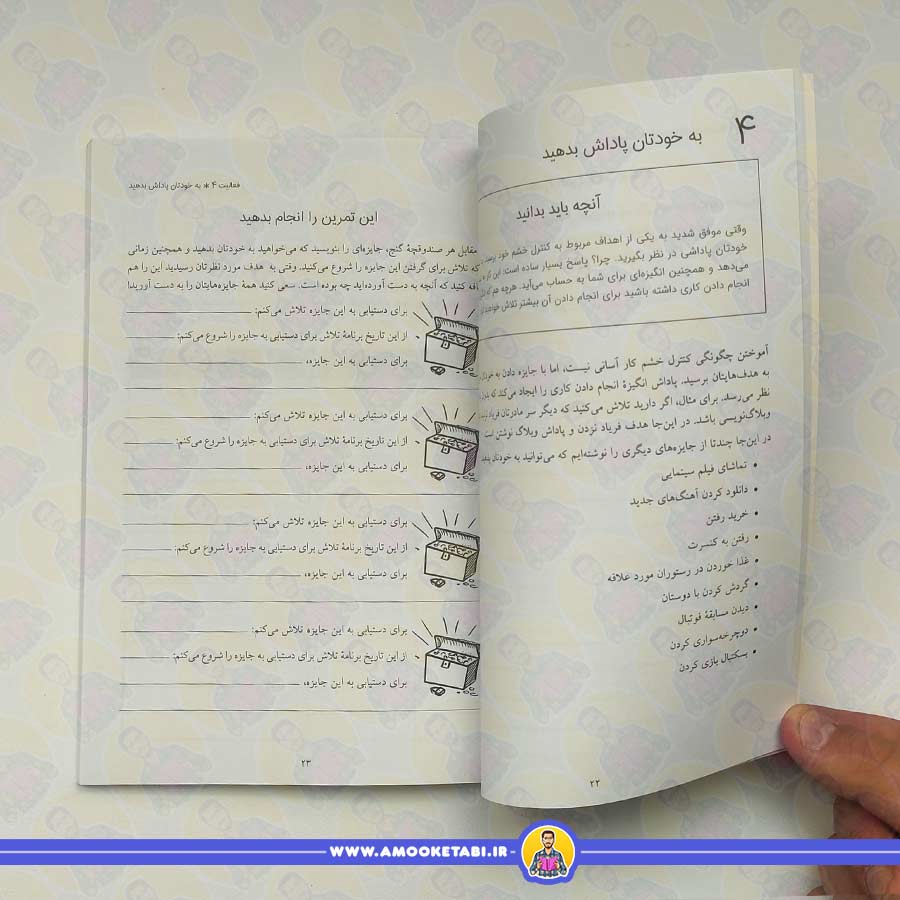 ۴
به خودتان پاداش بدهید
آنچه باید بدانید
وقتی موفق شدید به یکی از اهداف مربوط به کنترل خشم خود برسید،
خودتان پاداشی در نظر بگیرید. چرا؟ پاسخ بسیار ساده است: این کار
می‌دهد و همچنین انگیزه‌ای برای شما به حساب می‌آید. هرچه هم که
انجام دادن کاری داشته باشید برای انجام دادن آن بیشتر تلاش خواهید
آموختن چگونگی کنترل خشم کار آسانی نیست، اما با جایزه دادن به خودتان
به هدف‌هایتان برسید. پاداش انگیزهٔ انجام دادن کاری را ایجاد می‌کند که
نظر می‌رسد. برای مثال، اگر دارید تلاش می‌کنید که دیگر سر مادرتان فریاد
وبلاگ‌نویسی باشد. در این‌جا هدف فریاد نزدن و پاداش وبلاگ نوشتن است
در این‌جا چندتا از جایزه‌های دیگری را نوشته‌ایم که می‌توانید به خودتان
• تماشای فیلم سینمایی
• دانلود کردن آهنگ‌های جدید
• خرید رفتن
• رفتن به کنسرت
• غذا خوردن در رستوران مورد علاقه
• گردش کردن با دوستان
• دیدن مسابقهٔ فوتبال
• دوچرخه‌سواری کردن
• بسکتبال بازی کردن
۲۲
فعالیت ۴ * به خودتان پاداش بدهید
این تمرین را انجام بدهید
مقابل هر صندوقچهٔ گنج، جایزه‌ای را بنویسید که می‌خواهید به خودتان بدهید و همچنین زمانی
که تلاش برای گرفتن این جایزه را شروع می‌کنید. وقتی به هدف مورد نظرتان رسیدید این را هم
کنید که آنچه به دست آورده‌اید چه بوده است. سعی کنید همهٔ جایزه‌هایتان را به دست آورید!
برای دستیابی به این جایزه تلاش می‌کنم:
از این تاریخ برنامهٔ تلاش برای دستیابی به جایزه را شروع می‌کنم:
برای دستیابی به این جایزه،
برای دستیابی به این جایزه تلاش می‌کنم:
از این تاریخ برنامهٔ تلاش برای دستیابی به جایزه را شروع می‌کنم:
برای دستیابی به این جایزه،
برای دستیابی به این جایزه تلاش می‌کنم:
از این تاریخ برنامهٔ تلاش برای دستیابی به جایزه را شروع می‌کنم:
برای دستیابی به این جایزه،
برای دستیابی به این جایزه تلاش می‌کنم:
از این تاریخ برنامهٔ تلاش برای دستیابی به جایزه را شروع می‌کنم:
برای دستیابی به این جایزه،
۲۳
WWW.AMOOKETABI.IR